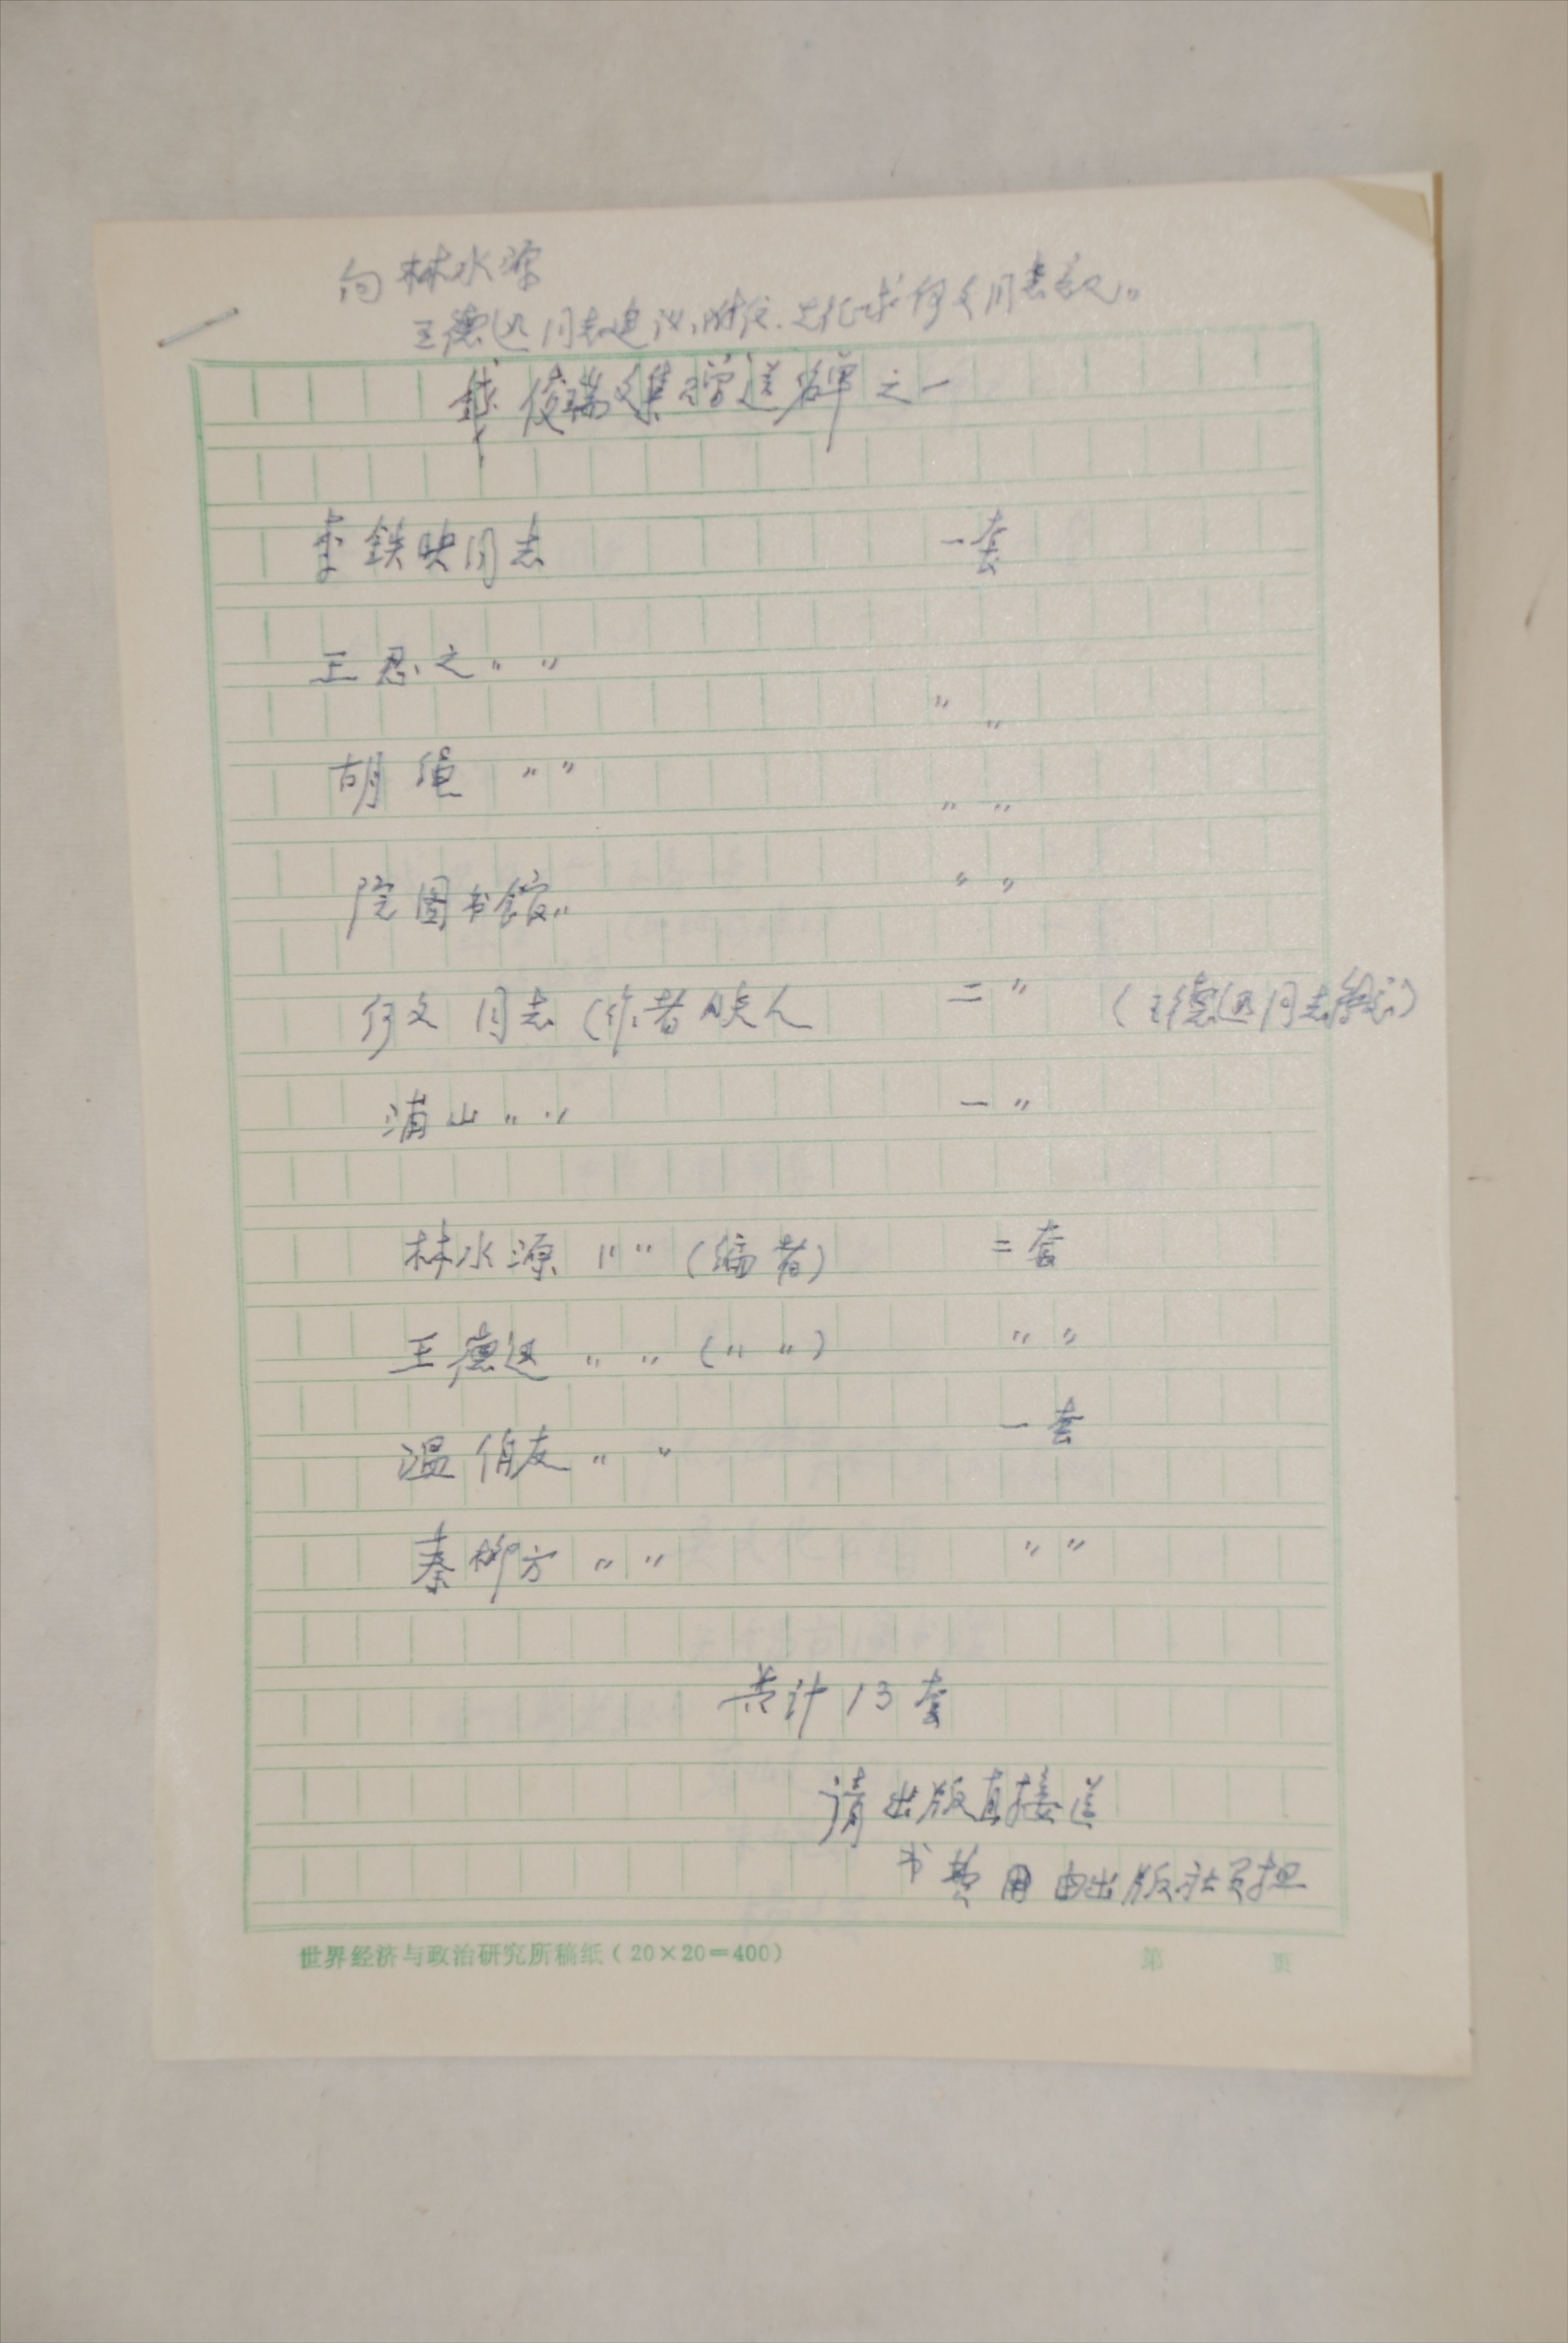 向林水源
王德迅同志建议,附后.先征求何文同志意见"
钱俊瑞文集赠送名单之一
李铁映同志 一套
王忍之 " " " "
胡绳 " " " "
院图书馆" " "
何文同志(作者爱人 二 " (王德迅同志)
浦山 " " 一 "
林水源 " " (编者) 二套
王德迅 " " ( " " ) " "
温伯友 " " 一套
秦柳方 " " " "
共计13套
请出版直接送
书费用由出版社负担
世界经济与政治研究所稿纸(20×20=400) 第 页